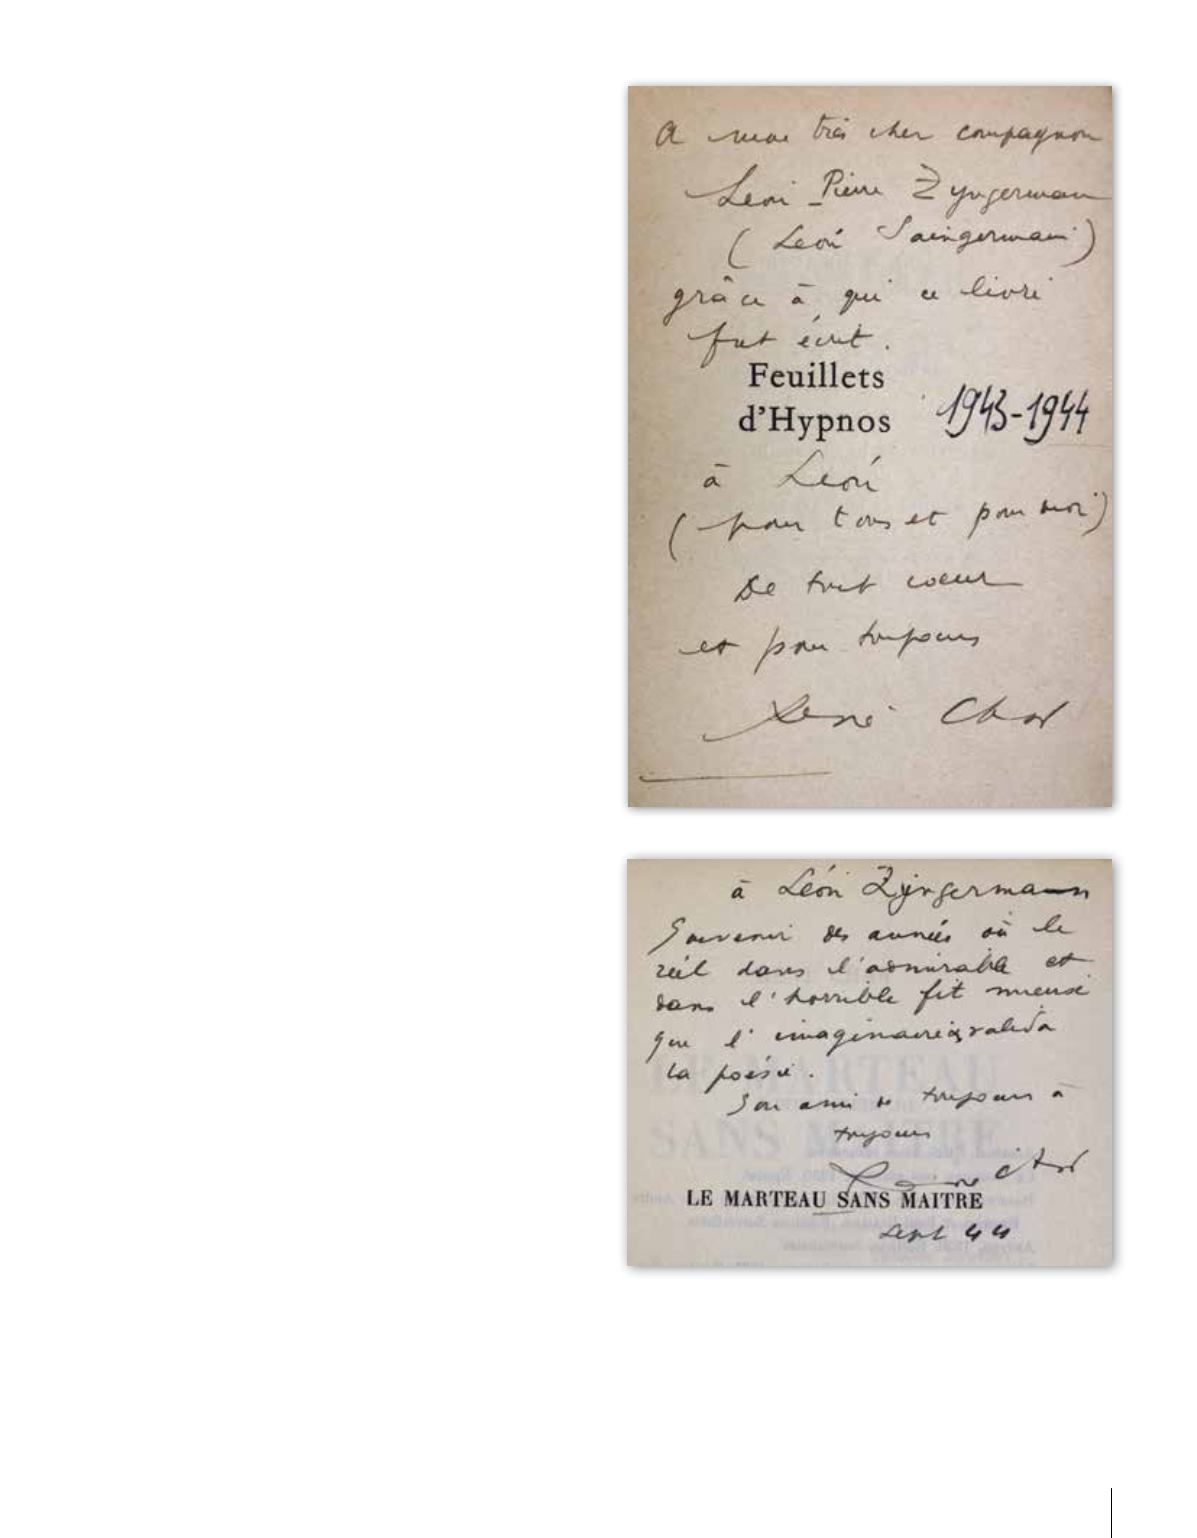 A mon très cher compagnon
Léon Pierre Zyngerman
(Léon Saingermain)
grâce à qui ce livre
fut écrit.
Feuillets
d'Hypnos 1943-1944
à Léon
(pour tous et pour moi)
De tout coeur
et pour toujours
René Char
à Léon Zyngerman
Souvenir des années où le
réel dans l'admirable et
dans l'horrible fit mieux
que l'imaginaire valida
la poésie.
Son ami de toujours à
toujours
René Char
LE MARTEAU SANS MAITRE
Sept 44